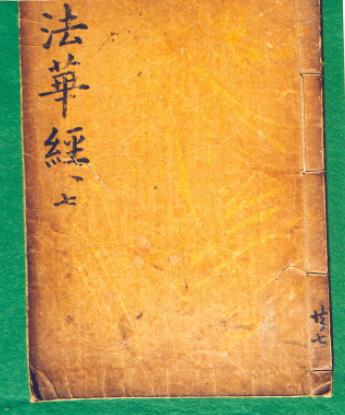 法華經 七
共七